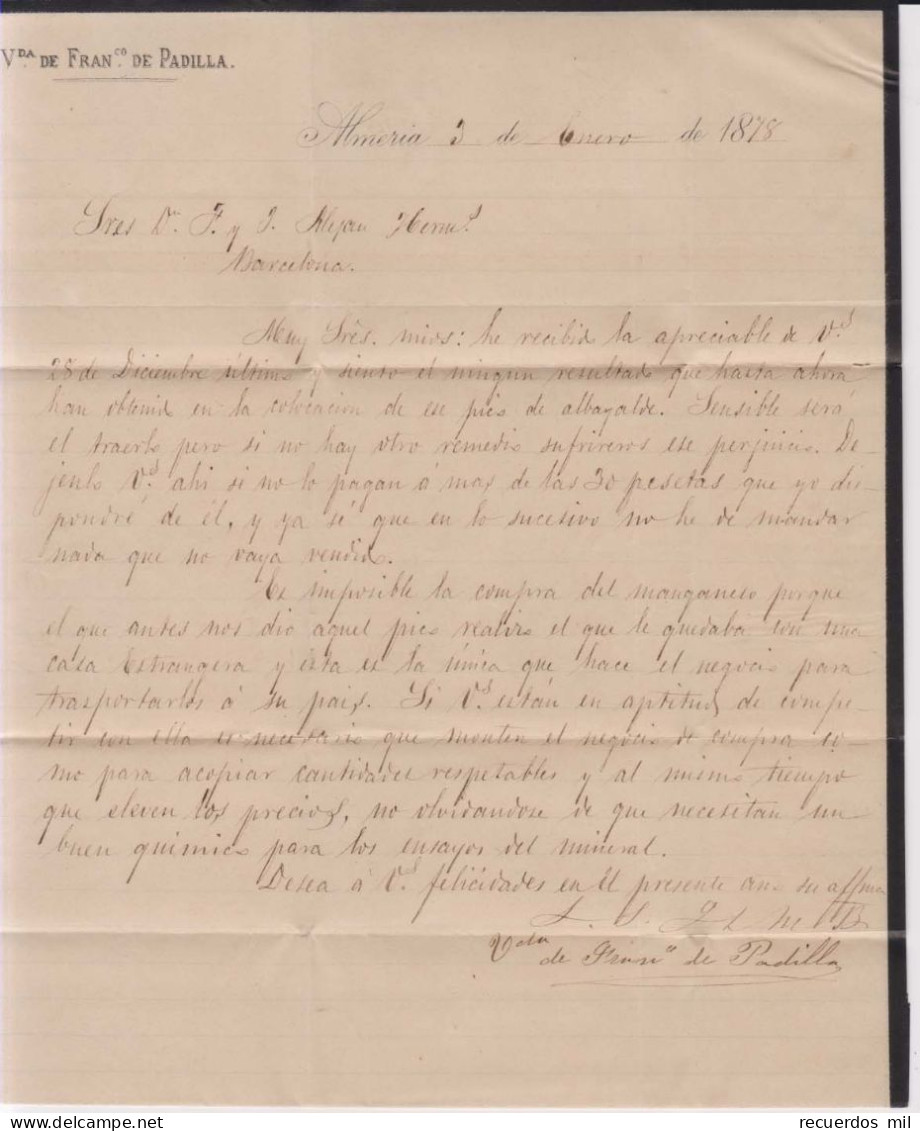 Vda. DE FRANco. DE PADILLA.
Almeria 3 de Enero de 1878
Sres Dn. F. y J. Alejan Herms.
Barcelona.
Muy Srês. mios: he recibido la apreciable de Vds
28 de Diciembre último y siento el ningun resultado que hasta ahora
han obtenido en la colocacion de ese pico de albayalde. Sensible será
el traerlo pero si no hay otro remedio sufriremos ese perjuicio. De-
jenlo Vds. ahi si no lo pagan á mas de las 30 pesetas que yo dis-
pondré de él, y ya sé que en lo sucesivo no he de mandar
nada que no vaya vendido.
Es imposible la compra del manganeso porque
el que antes nos dio aquel pico realizo el que le quedaba con una
casa Estrangera y ésta es la única que hace el negocio para
trasportarlos á su pais. Si Vds. están en aptitud de compe-
tir con ella es necesario que monten el negocio de compra co-
mo para acopiar cantidades respetables y al mismo tiempo
que eleven los precios, no olvidandose de que necesitan un
buen quimico para los ensayos del mineral.
Desea á Vds. felicidades en él presente año su affma
S. S. Q S M B
Vda de Franco de Padilla
recuerdos mil